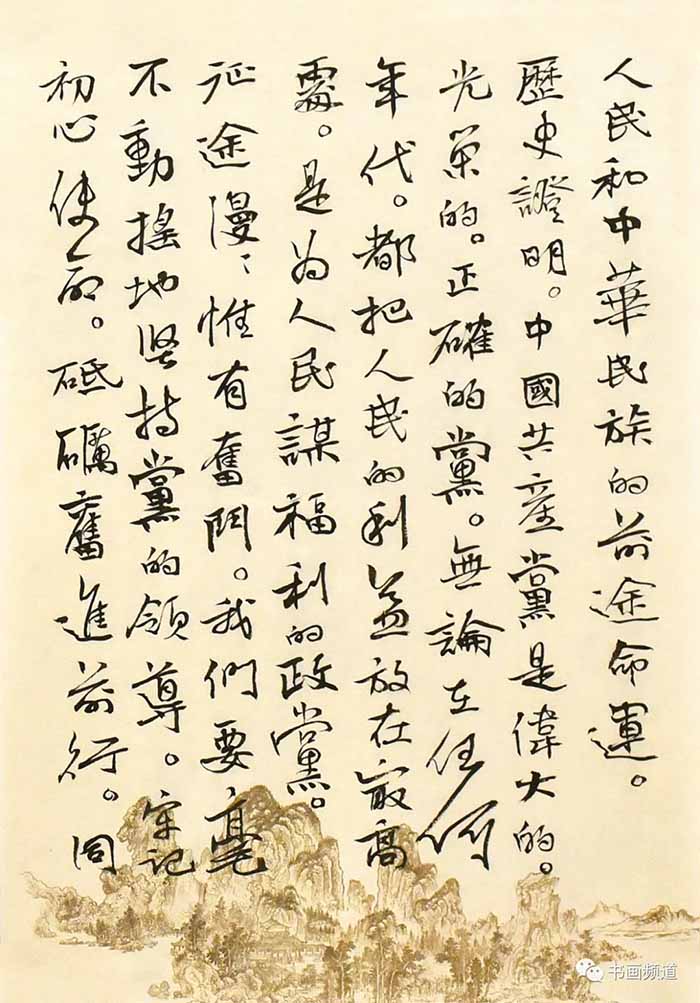 人民和中華民族的前途命運。
歷史證明。中國共産黨是偉大的。
光榮的。正確的黨。無論在任何
年代。都把人民的利益放在最高
處。是为人民謀福利的政黨。
征途漫〻惟有奮鬥。我們要毫
不動搖地坚持黨的領導。牢記
初心使命。砥礪奮進前行。同
书画频道